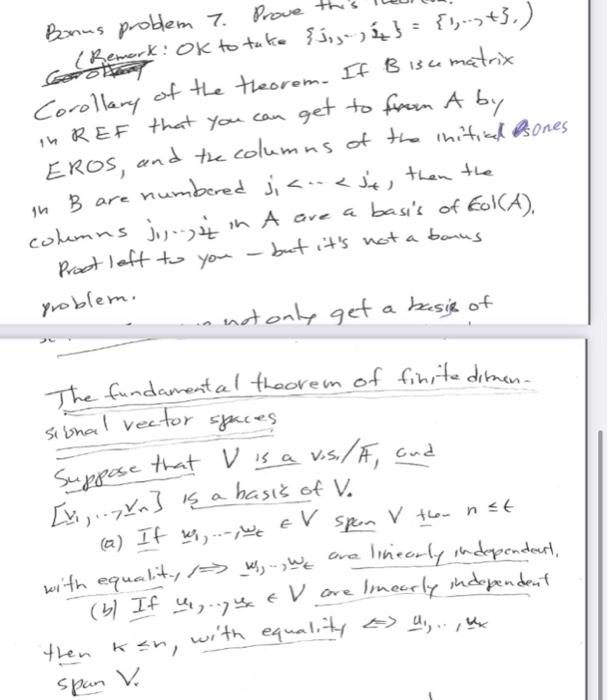 Bonus problem 7. Prove this
(Remark: OK to take {j₁,..,jₜ} = {1,..,t}.)
Corollary of the theorem. If B is a matrix
in REF that you can get to from A by
EROS, and the columns of the initial ones
in B are numbered j₁ <..< jₜ, then the
columns j₁,..,jₜ in A are a basis of Col(A).
Proof left to you - but it's not a bonus
problem.
not only get a basis of
The fundamental theorem of finite dimen-
sional vector spaces
Suppose that V is a v.s./F, and
[v₁,..,vₙ] is a basis of V.
(a) If w₁,..,wₜ ∈ V span V then n ≤ t
with equality ⟺ w₁,..,wₜ are linearly independent.
(b) If u₁,..,uₖ ∈ V are linearly independent
then k ≤ n, with equality ⟺ u₁,..,uₖ
span V.